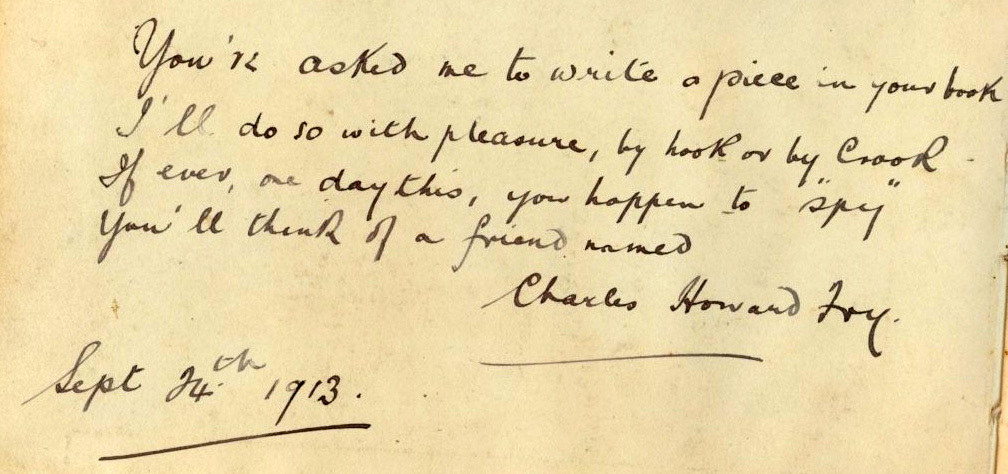 You've asked me to write a piece in your book
I'll do so with pleasure, by hook or by Crook -
If ever, one day this, you happen to "spy"
You'll think of a friend named
Charles Howard Fry.
Sept 24th 1913.